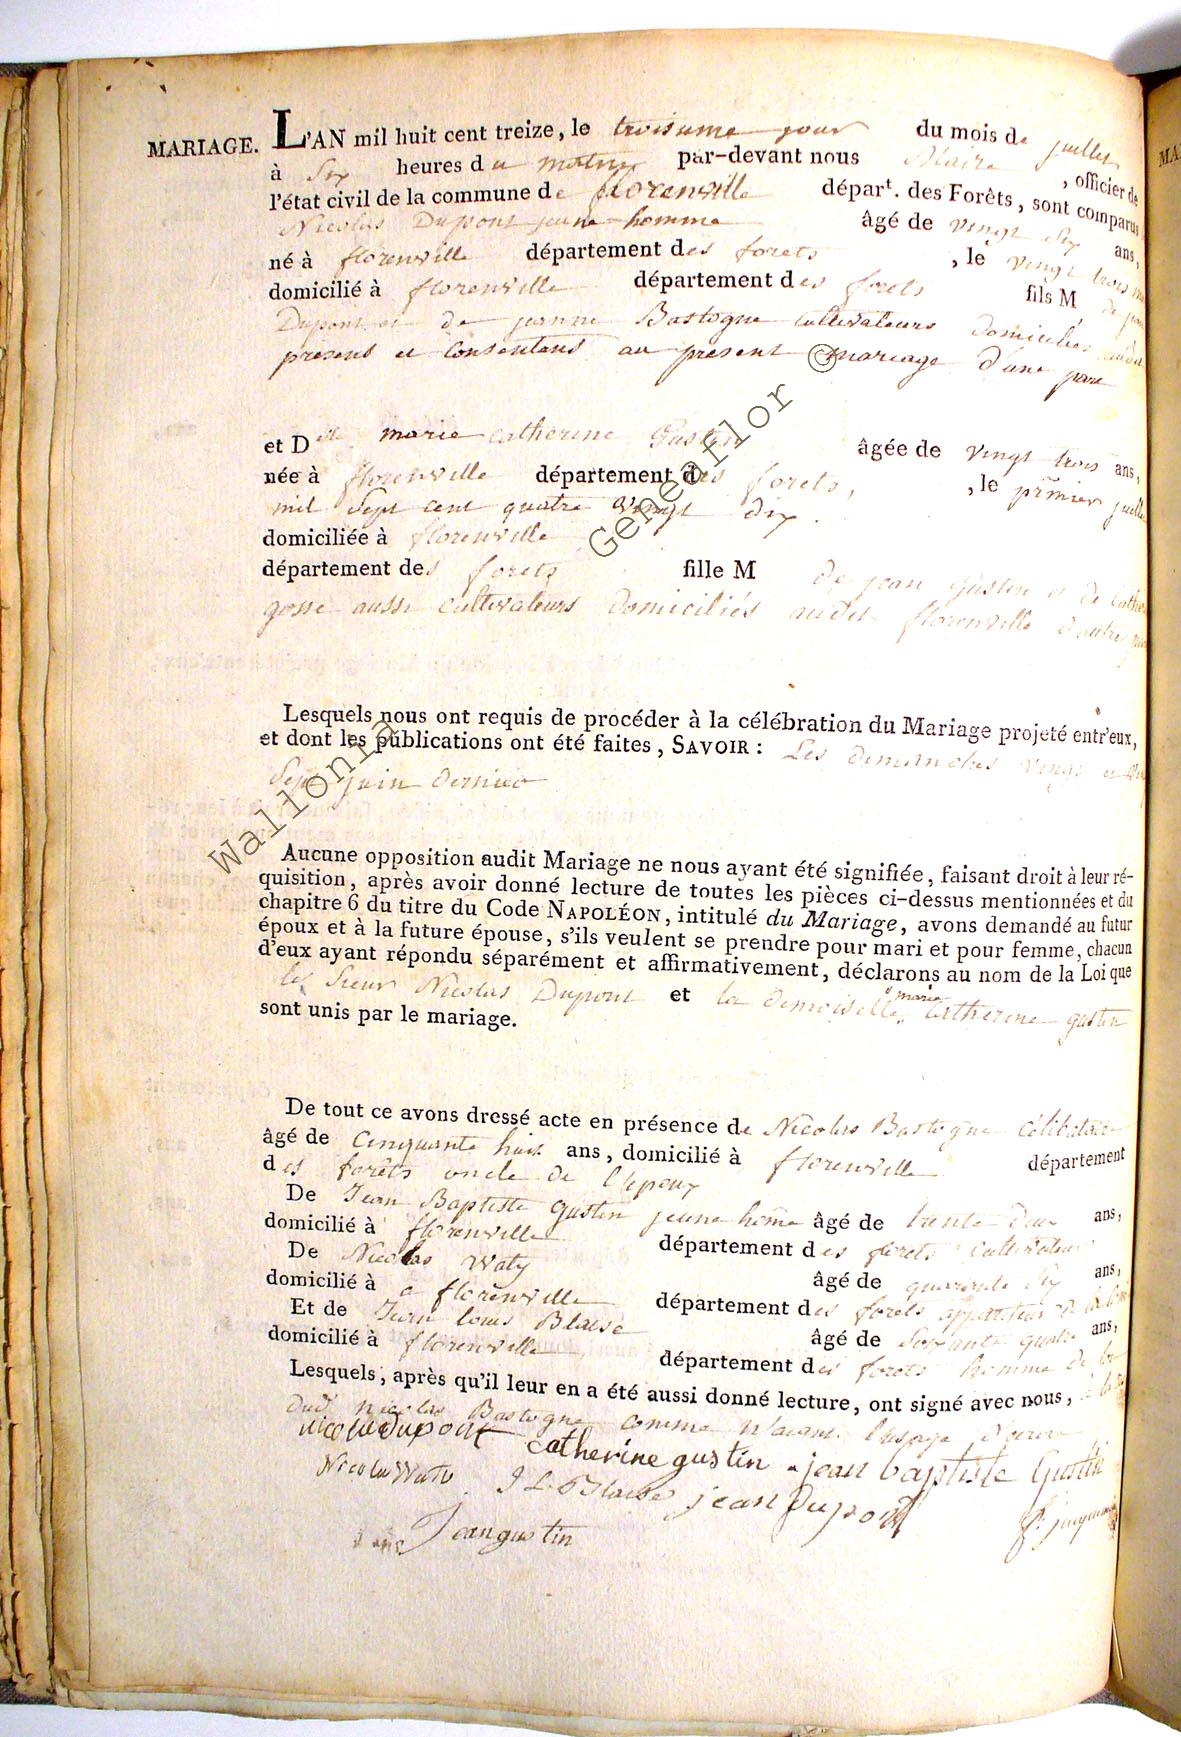 MARIAGE. L'AN mil huit cent treize, le troisieme jour du mois de juillet
à Six heures du matin par-devant nous Maire, officier de
l'état civil de la commune de florenville départ. des Forêts, sont comparus
Nicolas Dupont jeune homme âgé de vingt Six ans,
né à florenville département des forets, le vingt trois
domicilié à florenville département des forets fils M de
Dupont et de jeanne Bastogne cultivateurs domiciliés audit
presens et consentans au present mariage d'une part
et Dlle marie catherine Gustin âgée de vingt trois ans,
née à florenville département des forets, , le premier juillet
mil Sept cent quatre vingt dix.
domiciliée à florenville
département des forets fille M de jean gustin et de Cathe
gosse aussi cultivateurs domiciliés audit florenville d'autre part
Lesquels nous ont requis de procéder à la célébration du Mariage projeté entr'eux,
et dont les publications ont été faites, SAVOIR : Les dimanches vingt et vingt
Sept juin dernier
Aucune opposition audit Mariage ne nous ayant été signifiée, faisant droit à leur ré-
quisition, après avoir donné lecture de toutes les pièces ci-dessus mentionnées et du
chapitre 6 du titre du Code NAPOLÉON, intitulé du Mariage, avons demandé au futur
époux et à la future épouse, s'ils veulent se prendre pour mari et pour femme, chacun
d'eux ayant répondu séparément et affirmativement, déclarons au nom de la Loi que
le Sieur Nicolas Dupont et la demoiselle marie Catherine gustin
sont unis par le mariage.
De tout ce avons dressé acte en présence de Nicolas Bastogne célibataire
âgé de cinquante huit ans, domicilié à florenville département
des forêts oncle de l'epoux
De Jean Baptiste Gustin jeune hôme âgé de trente deux ans,
domicilié à florenville département des forets cultivateur
De Nicolas Waty âgé de quarante Six ans,
domicilié à a florenville département des forets appariteur de
Et de Jean louis Blaise âgé de Soixante quatre ans,
domicilié à florenville département des forets homme de loi
Lesquels, après qu'il leur en a été aussi donné lecture, ont signé avec nous,
dudit nicolas Bastogne comme n'ayant l'usage d'ecrire
nicolas dupont catherine gustin jean baptiste Gustin
Nicolas Waty J L Blaise jean Dupont
Jean gustin
Wallonia Geneaflor ©